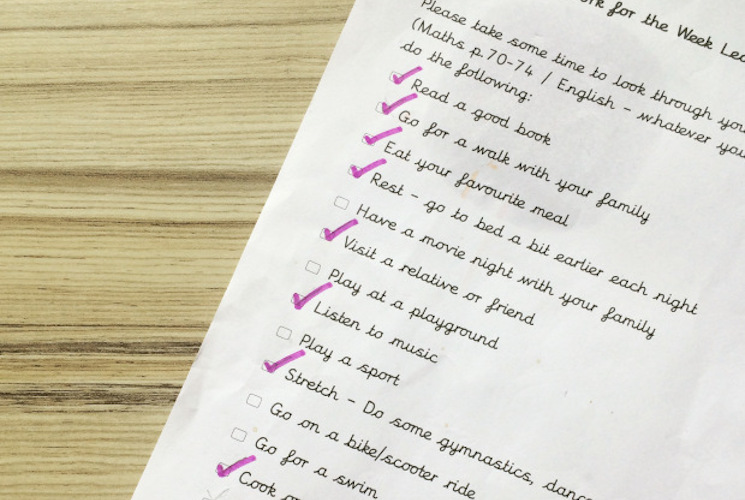 for the Week
Please take some time to look through
(Maths p.70-74 / English - whatever
do the following:
Read a good book
Go for a walk with your family
Eat your favourite meal
Rest - go to bed a bit earlier each night
Have a movie night with your family
Visit a relative or friend
Play at a playground
Listen to music
Play a sport
Stretch - Do some gymnastics,
Go on a bike/scooter ride
Go for a swim
Cook